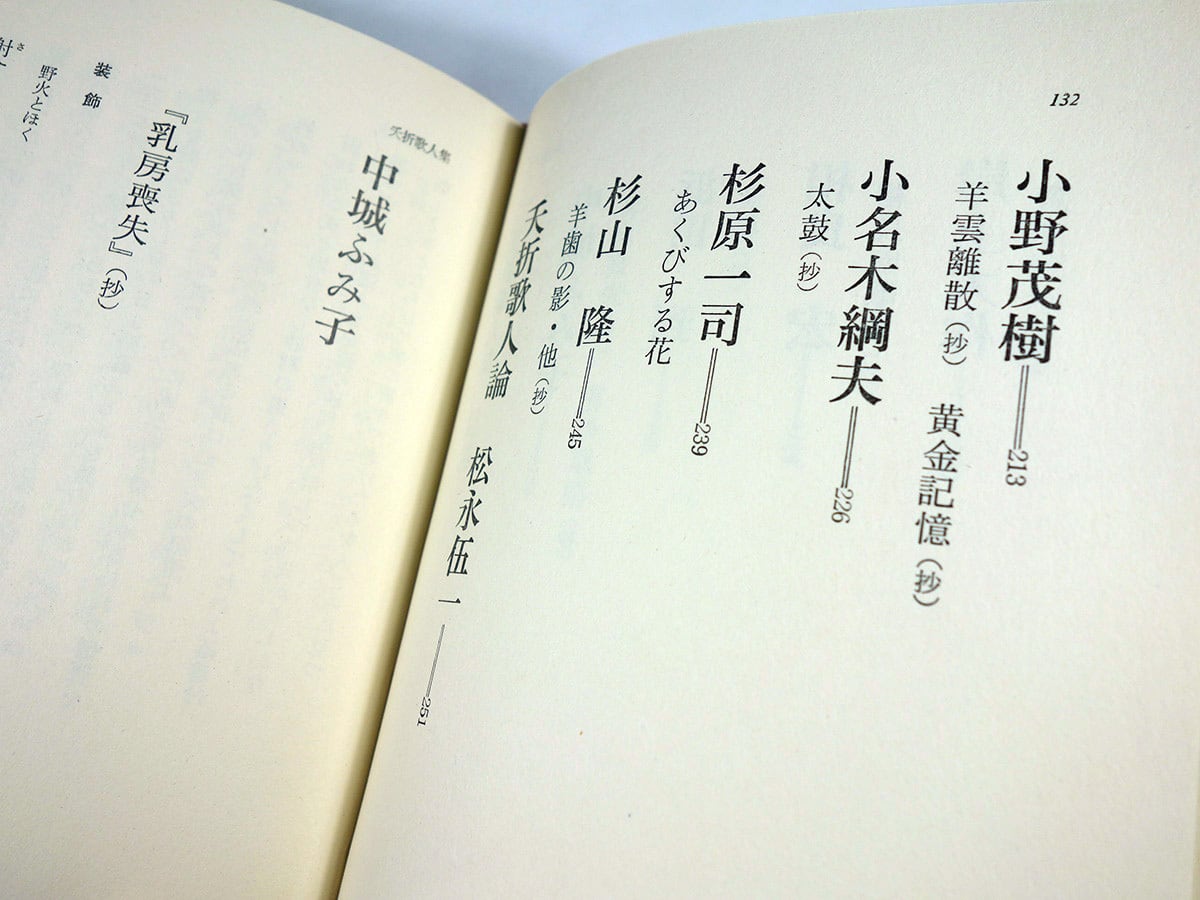 132
小野茂樹══213
羊雲離散(抄) 黄金記憶(抄)
小名木綱夫══226
太鼓(抄)
杉原一司══239
あくびする花
杉山 隆══245
羊歯の影・他(抄)
夭折歌人論 松永伍一══251
夭折歌人集
中城ふみ子
『乳房喪失』(抄)
装飾
野火とほく